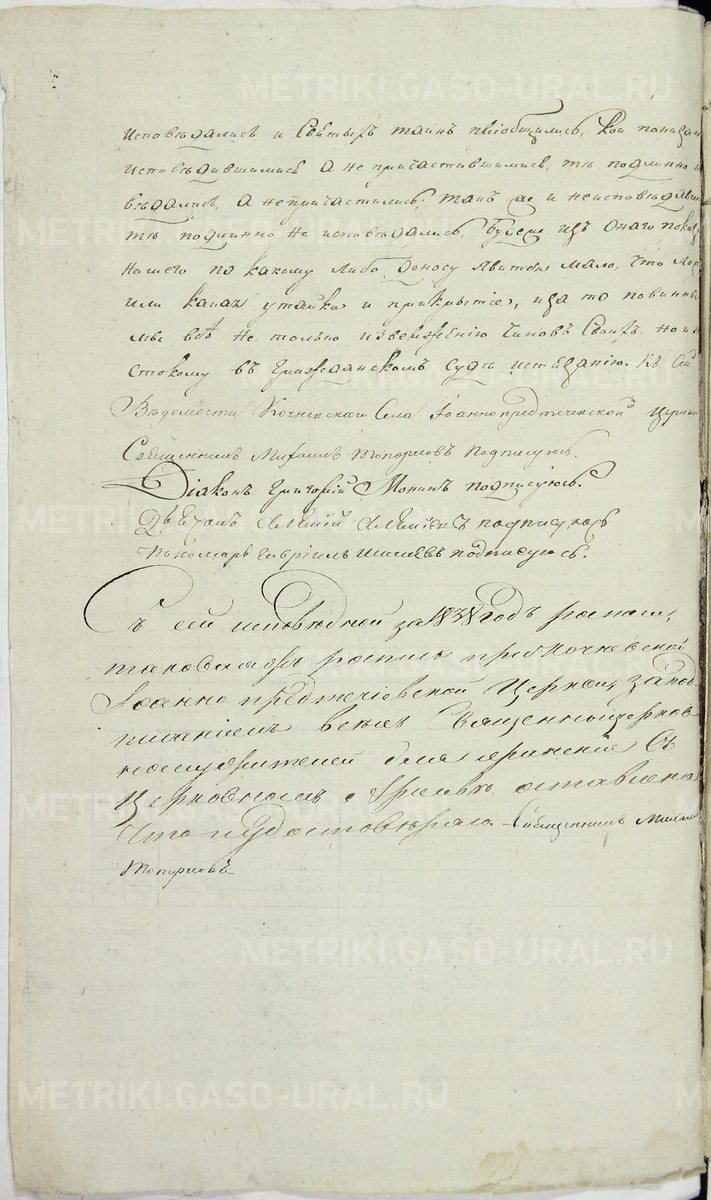 METRIKI.GASO-URAL.RU
исповѣдались и Святыхъ таинъ пріобщились, кои показан
исповѣдавшимися а не причастившимися, тѣ подлинно и
вѣдались, а не причастились; такъ же и неисповѣдавш
тѣ подлинно не исповѣдались, будеже изъ онаго показ
нашего по какому либо доносу явится мало, что ло
или какая утайка и прикрытіе, и за то повинны
мы всѣ не только изверженію чиновъ своихъ, но и
стокому въ гражданскомъ судѣ истязанію. Къ сей
Вѣдомости Кочневскаго Села Іоанно предтеченской церкви
Священникъ Михаилъ Топорковъ подписуюсь.
Діяконъ Григорій подписуюсь.
Алексій подписуюсь
Пономарь Гавріилъ подписуюсь.
Съ сей исповѣдной за 1838 годъ росписи,
таковаяжъ роспись при Кочневской
Іоанно предтечіевской Церкви, за под
писаніемъ всѣхъ Священноцерков
нослужителей для храненія въ
Церковномъ Архивѣ оставлена
Что и удостовѣряю. Священникъ Михаилъ
Топорковъ